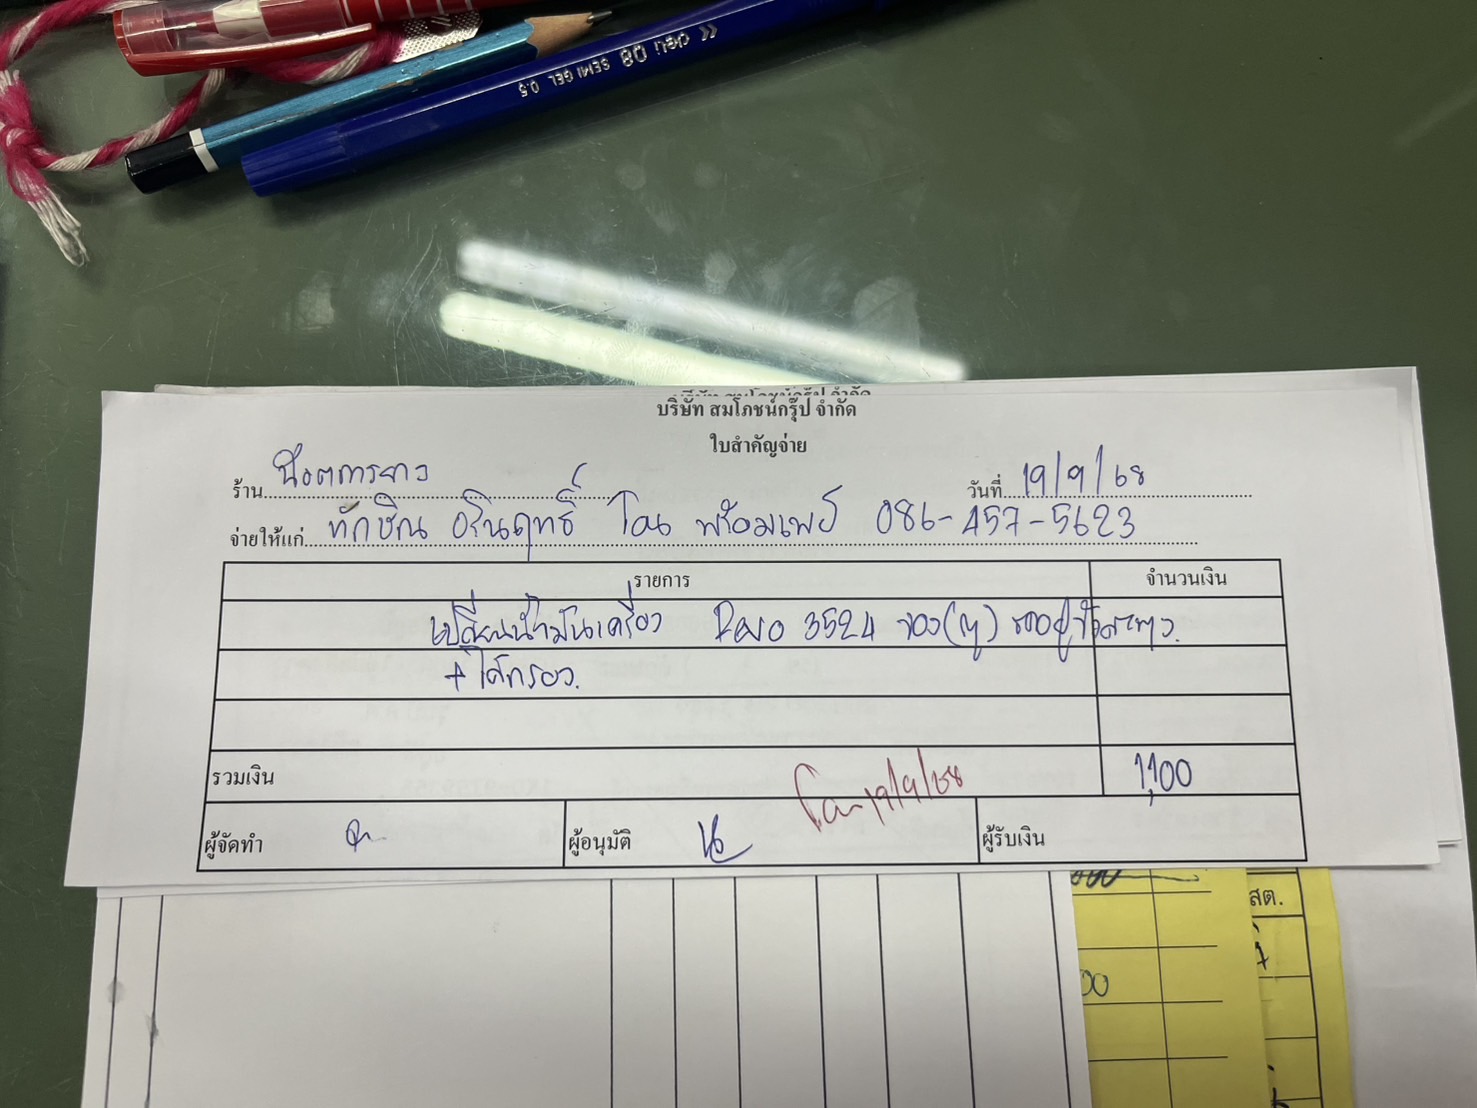 deli 08 SEMI GEL 0.5
บริษัท สมโภชน์กรุ๊ป จำกัด
บริษัท สมโภชน์กรุ๊ป จำกัด
ใบสำคัญจ่าย
ร้าน น๊อตการยาง
วันที่ 19/9/68
จ่ายให้แก่ ทักษิณ อรินฤทธิ์ โอน พร้อมเพย์ 086-457-5623
รายการ
จำนวนเงิน
เปลี่ยนน้ำมันเครื่อง Revo 3524 ของ
+ ไส้กรอง.
รวมเงิน
1,100
โอน 19/9/68
ผู้จัดทำ
ผู้อนุมัติ
ผู้รับเงิน
สต.